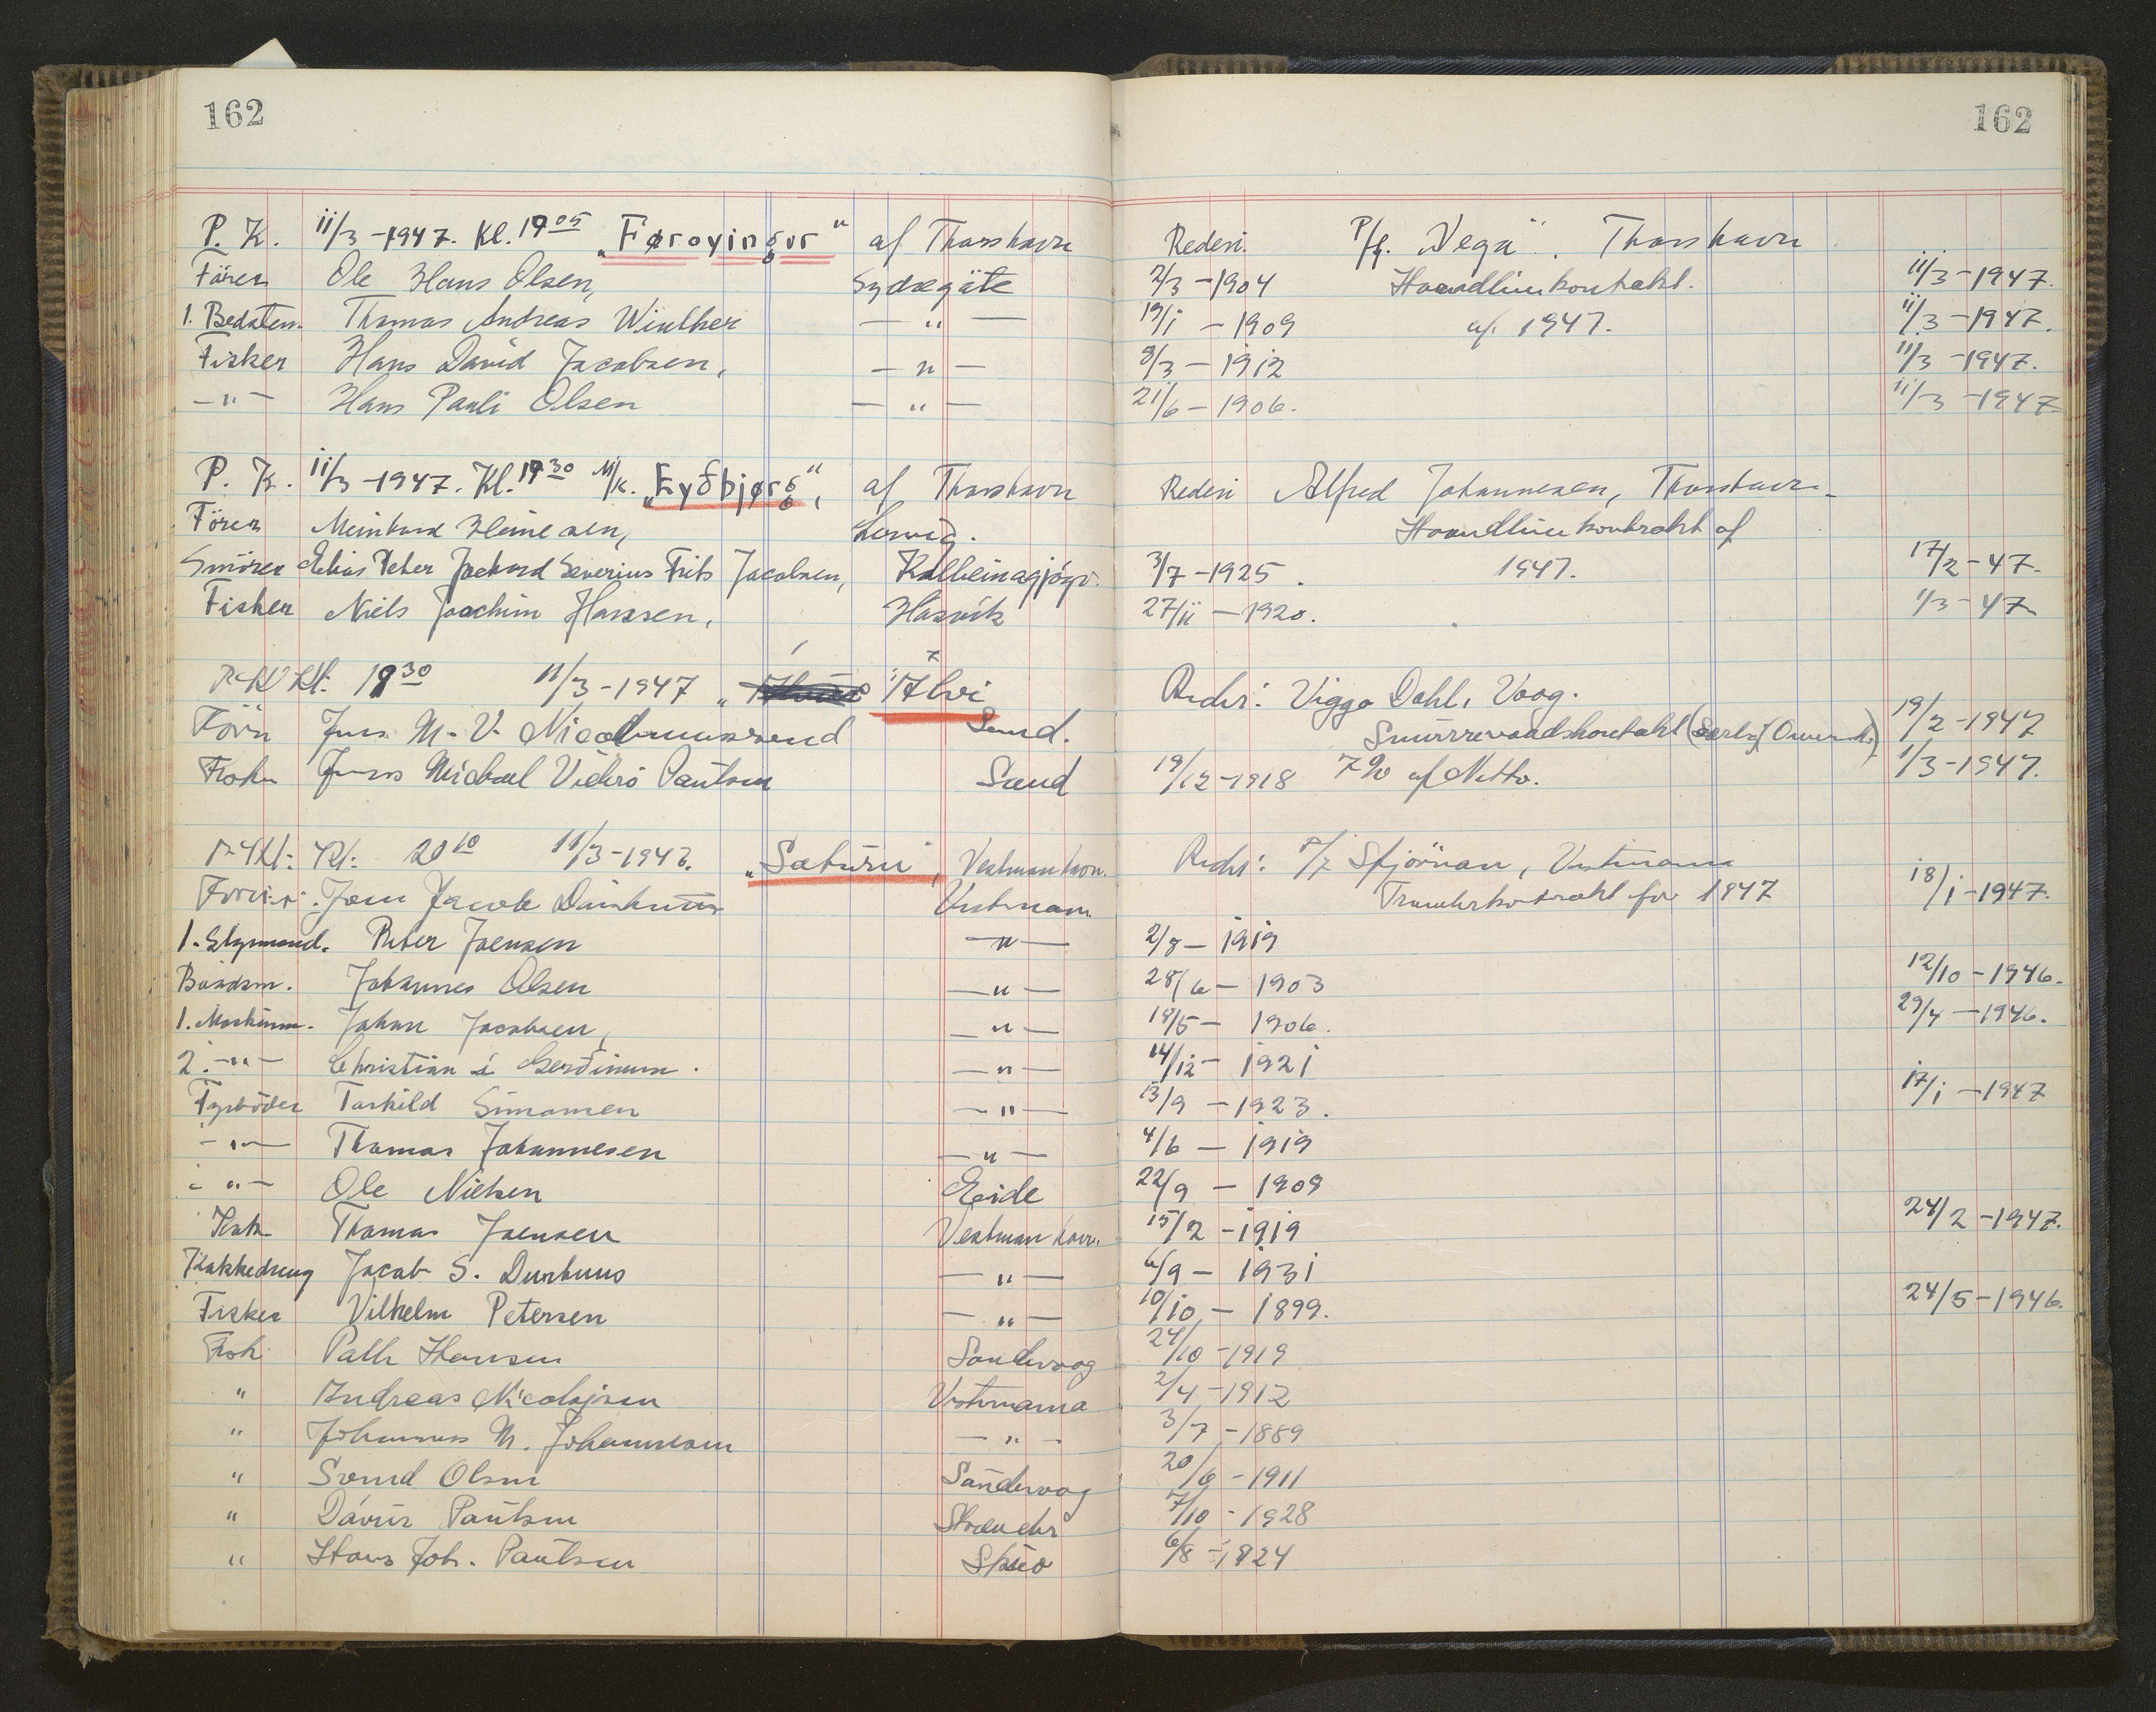 162 162
P. K. 11/3-1947. Kl. 19 05 „Føroyingur“ af Thorshavn Rederi P/f. „Vega“. Thorshavn
Förer Ole Hans Olsen, Sydregöte 2/3-1904 Haandlinekontrakt. 11/3-1947.
1. Bedstem. Thomas Andreas Winther —"— 19/1 - 1909 af. 1947. 11/3-1947.
Fisker Hans David Jacobsen, —"— 8/3 - 1912 11/3-1947.
—"— Hans Pauli Olsen —"— 21/6 - 1906. 11/3-1947
P. K. 11/3-1947. Kl. 19 30 M/k. „Eyðbjørg“, af Thorshavn Rederi Alfred Johannesen, Thorshavn.
Förer Meinhard Heinesen, Lervig. Haandlinekontrakt af
Smörer Elias Peter Jackard Severius Frits Jacobsen, Kolbeinagjógv. 3/7-1925. 1947. 17/2-47.
Fisker Niels Joachim Hansen, Husevik 27/11 - 1920. 1/3-47
Kl. 19 30 11/3-1947 „ Rederi: Viggo Dahl, Vaag.
Jens M. V. Sand. 19/2-1947
Jens Michael Viderö Paulsen Sand 19/12-1918 7% af Netto. 1/3-1947.
Kl. 20 10 11/3-1947. „Saturn“, Vestmanhavn. Rederi: P/f Stjörnan, Vestmanna
Jacob Vestmann. Trawlerkontrakt for 1947 18/1-1947.
1. Styrmand. Peter Joensen —"— 2/8 - 1919
Baadsm. Johannes Olsen —"— 28/6 - 1903 12/10-1946.
1. Maskinm. Johan Jacobsen, —"— 18/5 - 1906. 29/4-1946.
2. —"— Christian í Gerðinum. —"— 14/12 - 1921
Fyrböder Torkild Simonsen —"— 13/9 - 1923. 17/1-1947
—"— Thomas Johannesen —"— 4/6 - 1919
—"— Ole Nielsen Eide 22/9 - 1909
Kok Thomas Joensen Vestmanhavn. 15/2-1919 24/2-1947.
Kokkedreng Jacob S. Durhuus —"— 6/9 - 1931
Fisker Vilhelm Petersen —"— 10/10 - 1899. 24/5-1946.
Fisk. Palle Hansen Sandevaag 24/10-1919
" Andreas Nicolajsen Vestmanna 2/4-1912
" Johannes M. Johannesen —"— 3/7-1889
" Svend Olsen Sandevaag 20/6-1911
" Dávur Paulsen 7/10-1928
" Hans Joh. Paulsen Skuo 6/8-1924